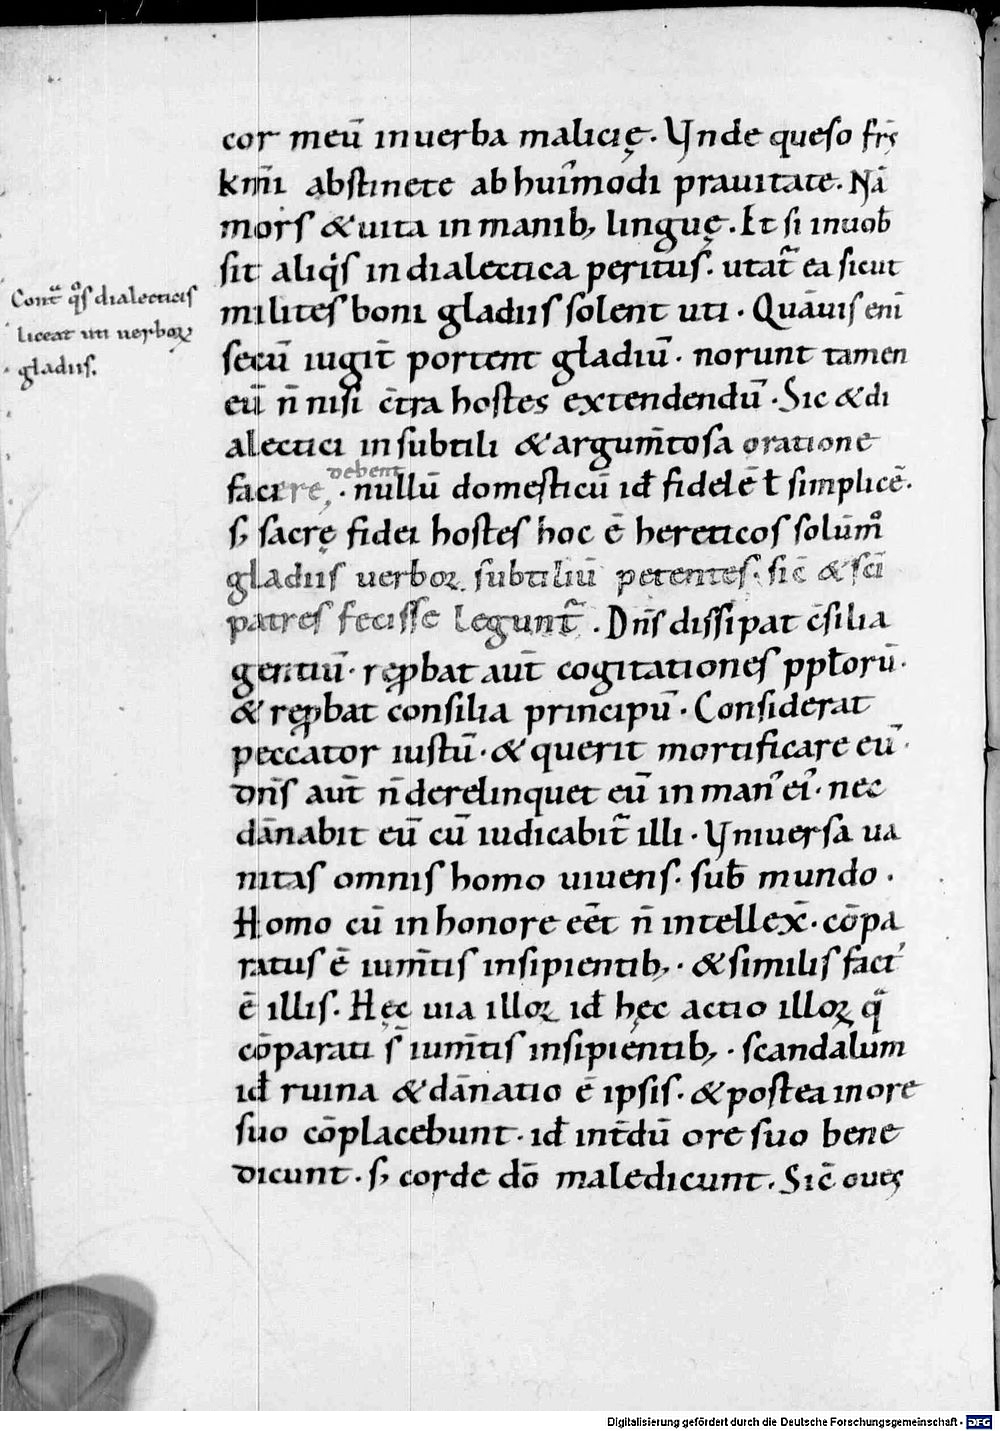 cor meū in uerba malicię. Vnde queso frs̄
km̄i abstinete ab huīmodi prauitate. Nā
mors & uita in manib; linguę. Et si in uob̄
sit aliq̇s in dialectica peritus. utat᷑ ea sicut
milites boni gladiis solent uti. Quāuis enī
secū iugit̄ portent gladiū. norunt tamen
eū n̄ nisi c̄tra hostes extendendū. Sic & di
alectici in subtili & argum̄tosa oratione
debent
facere, . nullū domesticū id̄ fidelē ł simplicē.
s; sacrę fidei hostes hoc ē hereticos solūm̊
gladiis uerboꝝ subtiliū petentes. sic̄ & sc̄i
patres fecisse legunt᷑. Dn̄s dissipat c̄silia
gentiū. reꝓbat aut̄ cogitationes pp̄lorū.
& reꝓbat consilia principū. Considerat
peccator iustū. & querit mortificare eū.
Dn̄s aut̄ n̄ derelinquet eū in man' ei'. nec
dānabit eū cū iudicabit᷑ illi. Vniuersa ua
nitas omnis homo uiuens. sub̄ mundo.
Homo cū in honore eēt n̄ intellex̄. cōpa
ratus ē ium̄tis insipientib;. & similis fact'
ē illis. Hęc uia illoꝝ id̄ hęc actio illoꝝ qͣ
cōparati s̄ ium̄tis insipientib;. scandalum
id̄ ruina & dānatio ē ipsis. & postea in ore
suo cōplacebunt. id̄ int̄dū ore suo bene
dicunt. s; corde dō maledicunt. Sic̄ oues
Cont᷑ q̊s dialecticis
liceat uti uerboꝝ
gladiis.
Digitalisierung gefördert durch die Deutsche Forschungsgemeinschaft - DFG